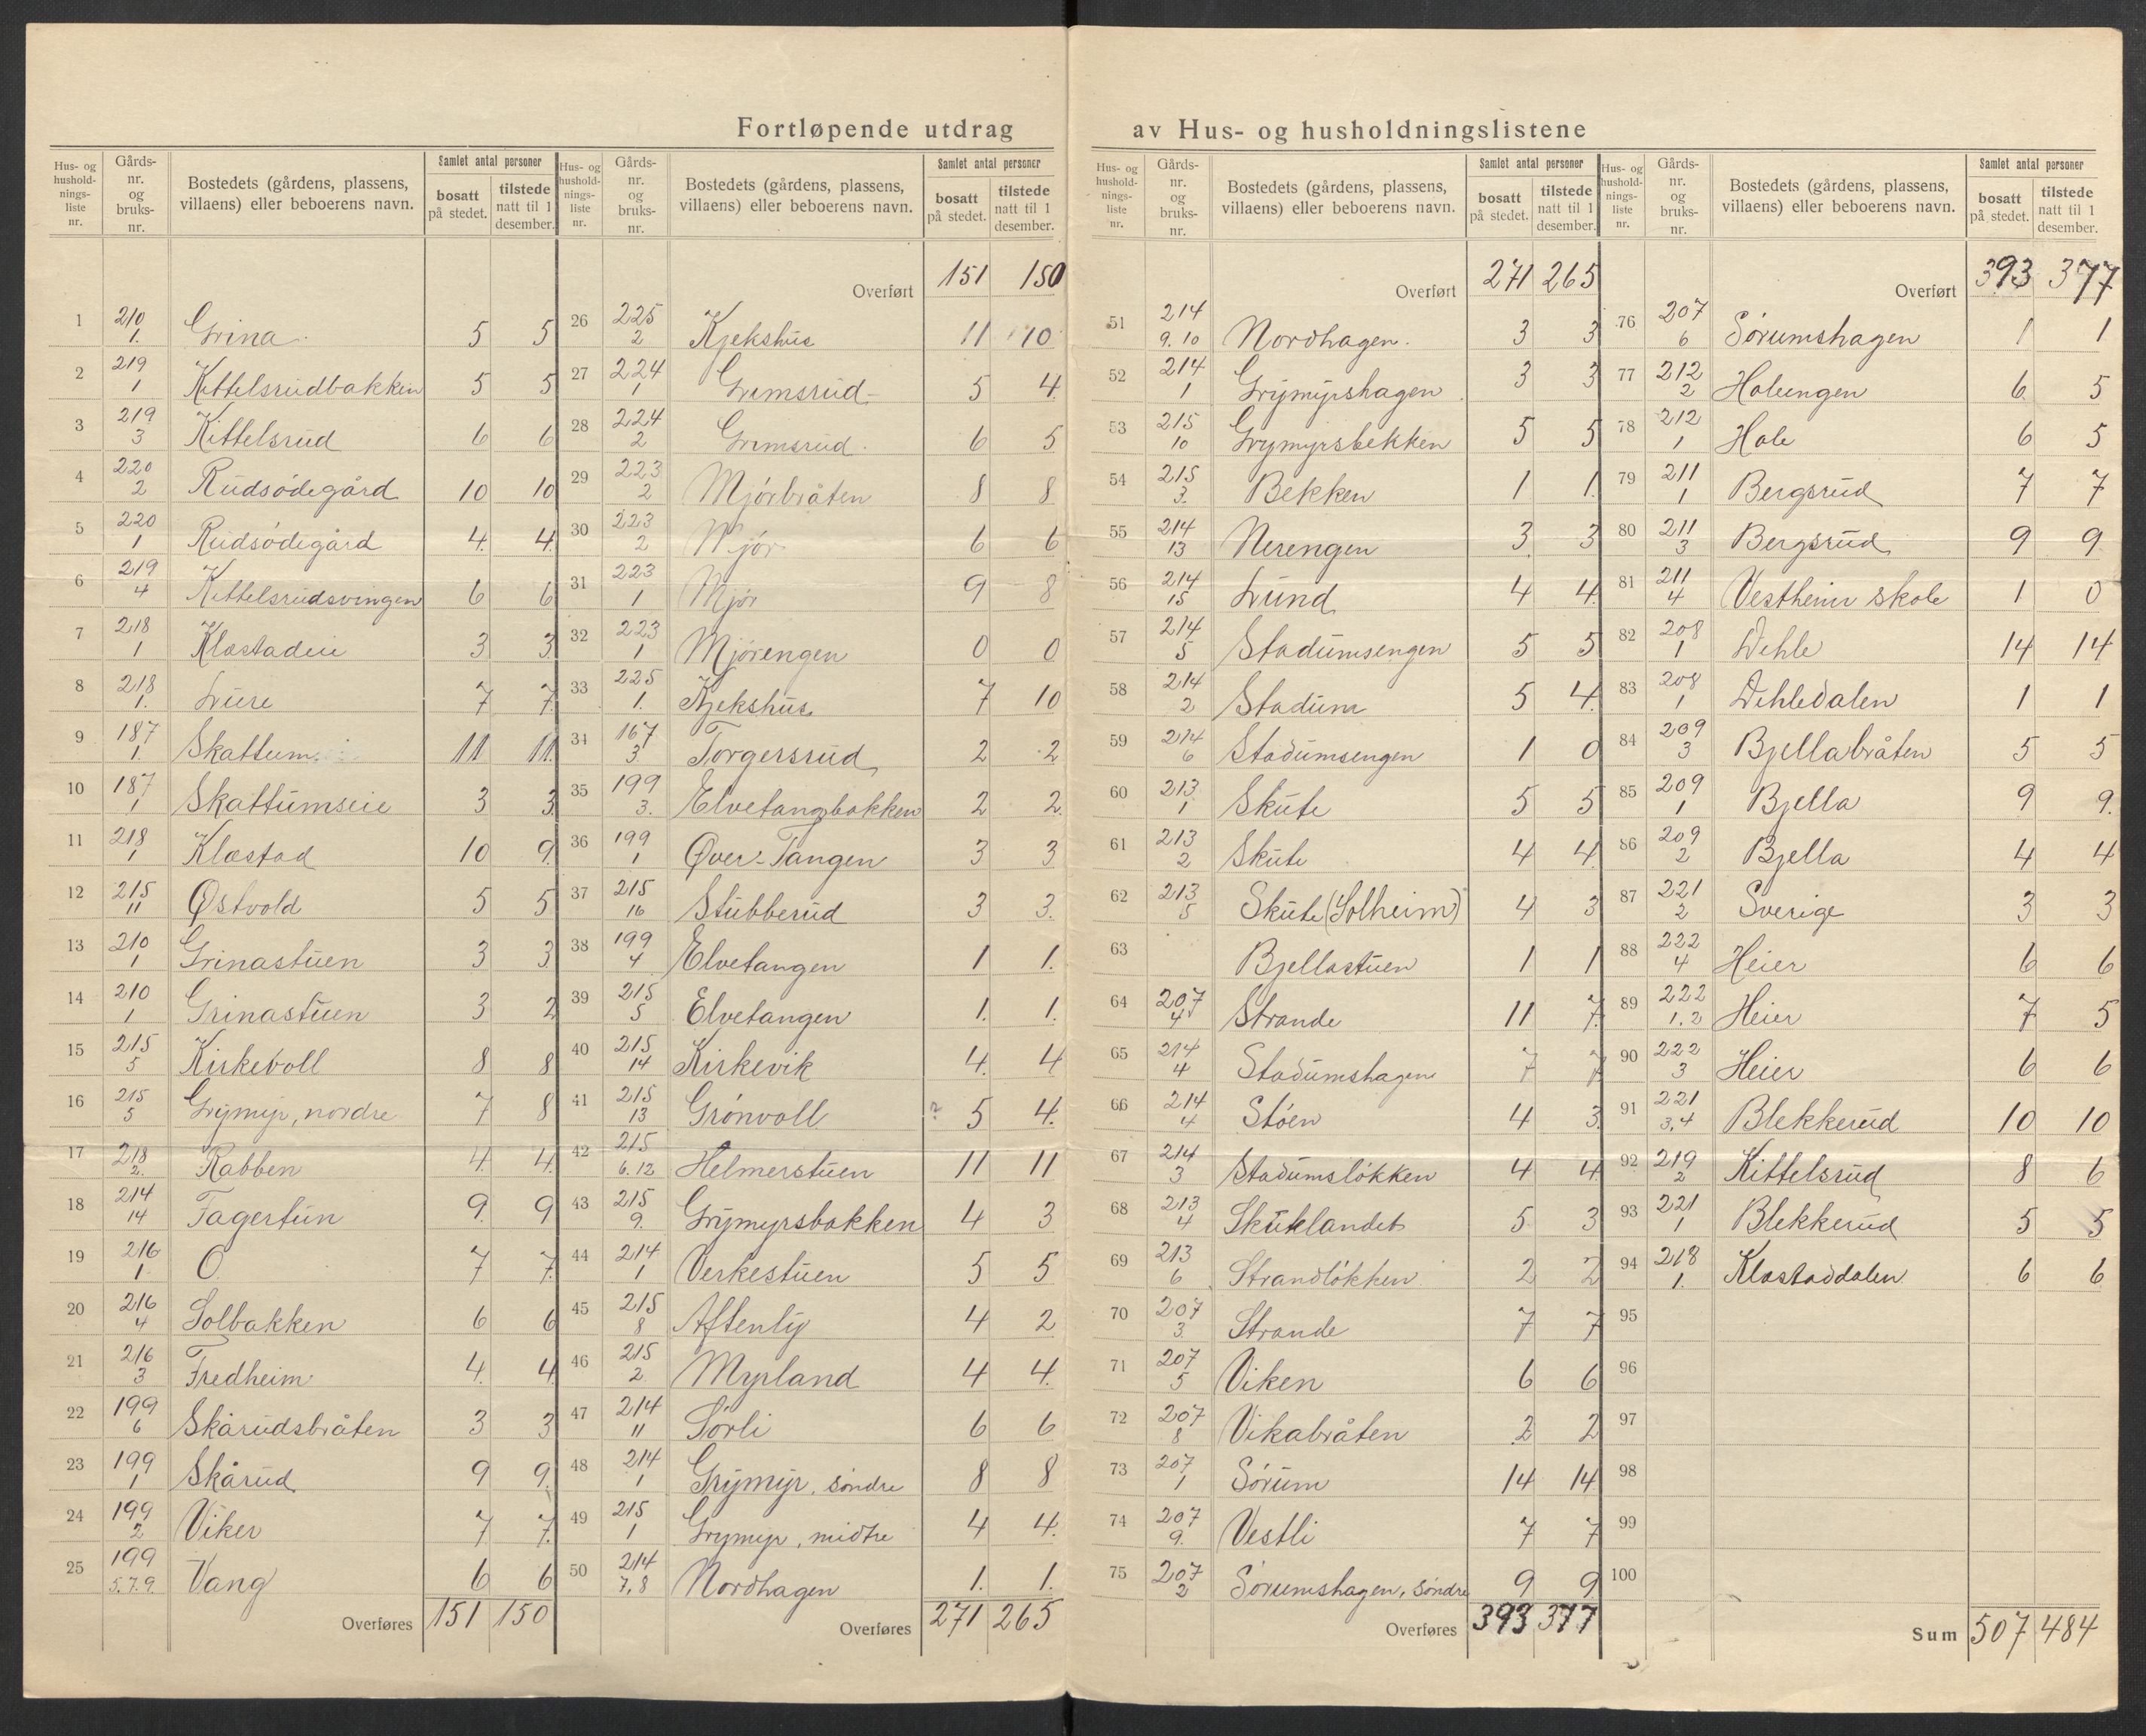 Fortløpende utdrag av Hus- og husholdningslistene
Hus- og hushold- nings- liste nr. | Gårds- nr. og bruks- nr. | Bostedets (gårdens, plassens, villaens) eller beboerens navn. | Samlet antal personer | bosatt på stedet. | tilstede natt til 1 desember.
1 210/1. Grina. 5 5
2 219/1 Kittelsrudbakken 5 5
3 219/3 Kittelsrud 6 6
4 220/2 Rudsødegård 10 10
5 220/1 Rudsødegård 4. 4.
6 219/4 Kittelsrudsvingen 6 6
7 218/1 Klæstadeie 3 3
8 218/1. Lure 7 7.
9 187/1. Skattum. 11 11.
10 187/1 Skattumseie 3 3
11 218/1 Klæstad 10 9.
12 215/11 Østvold 5 5
13 210/1 Grinastuen 3 3
14 210/1 Grinastuen 3 2
15 215/5 Kirkevoll 8 8
16 215/5 Grymyr, nordre 7 8
17 218/2. Rabben 4. 4.
18 214/14 Fagertun 9. 9
19 216/1. O 7 7.
20 216/4 Solbakken 6 6
21 216/3 Fredheim 4. 4.
22 199/6 Skårudsbråten 3 3
23 199/1 Skårud 9 9.
24 199/2 Viker 7 7.
25 199/5.7.9. Vang 6 6
Overføres 151 150
Hus- og hushold- nings- liste nr. | Gårds- nr. og bruks- nr. | Bostedets (gårdens, plassens, villaens) eller beboerens navn. | Samlet antal personer | bosatt på stedet. | tilstede natt til 1 desember.
Overført 151 150
26 225/2 Kjekshus 11 10
27 224/1 Grimsrud 5 4.
28 224/2 Grimsrud. 6 5
29 223/2 Mjørbråten 8 8
30 223/2 Mjør 6 6
31 223/1 Mjør 9 8
32 223/1 Mjørengen 0 0
33 225/1. Kjekshus 7 10
34 167/3. Torgersrud 2 2
35 199/3. Elvetangbakken 2 2.
36 199/1 Øver-Tangen 3 3
37 215/16 Stubberud 3 3.
38 199/4 Elvetangen 1 1.
39 215/5 Elvetangen 1. 1.
40 215/14 Kirkevik 4. 4
41 215/13 Grønvoll ? 5 4.
42 215/6.12 Helmerstuen 11 11
43 215/9. Grymyrsbakken 4 3
44 214/1 Verkestuen 5 5
45 215/8 Aftenly 4 2
46 215/2 Myrland 4 4.
47 214/11 Sørli 6 6
48 214/1 Grymyr, søndre 8 8
49 215/1 Grymyr, midtre 4 4.
50 214/7,8 Nordhagen 1. 1.
Overføres 271 265
Hus- og hushold- nings- liste nr. | Gårds- nr. og bruks- nr. | Bostedets (gårdens, plassens, villaens) eller beboerens navn. | Samlet antal personer | bosatt på stedet. | tilstede natt til 1 desember.
Overført 271 265
51 214/9.10 Nordhagen. 3 3
52 214/1 Grymyrshagen 3 3
53 215/10 Grymyrsbekken 5 5
54 215/3. Bekken 1 1.
55 214/13 Nerengen 3. 3
56 214/15 Lund 4 4.
57 214/5 Stadumsengen 5 5
58 214/2 Stadum 5 4.
59 214/6 Stadumsengen 1 0
60 213/1 Skute 5 5
61 213/2 Skute 4 4.
62 213/5 Skute (Solheim) 4 3
63 Bjellastuen 1 1
64 207/4 Strande 11 7.
65 214/4 Stadumshagen 7 7
66 214/4 Støen 4 3.
67 214/3 Stadumsløkken 4 4
68 213/4 Skuteslandet 5 3
69 213/6 Strandløkken 2 2
70 207/3. Strande 7 7
71 207/5 Viken 6 6
72 207/8 Vikabråten 2 2
73 207/1 Sørum 14 14
74 207/9. Vestli 7 7
75 207/2 Sørumshagen, søndre 9 9
Overføres 393 377
Hus- og hushold- nings- liste nr. | Gårds- nr. og bruks- nr. | Bostedets (gårdens, plassens, villaens) eller beboerens navn. | Samlet antal personer | bosatt på stedet. | tilstede natt til 1 desember.
Overført 393 377
76 207/6 Sørumshagen 1 1
77 212/2 Holengen 6 5
78 212/1 Hole 6 5
79 211/1 Bergsrud 7 7
80 211/3 Bergsrud 9 9.
81 211/4 Vestheim skole 1 0
82 208/1 Dehle 14 14
83 208/1 Dehledalen 1 1
84 209/3 Bjellabråten 5 5
85 209/1 Bjella 9 9.
86 209/2 Bjella 4 4
87 221/2 Sverige 3 3
88 222/4 Heier 6 6
89 222/1.2 Heier 7 5
90 222/3 Heier 6 6
91 221/3,4 Blekkerud 10 10
92 219/2 Kittelsrud 8 6
93 221/1 Blekkerud 5 5
94 218/1. Klæstaddalen 6 6
95
96
97
98
99
100
Sum 507 484